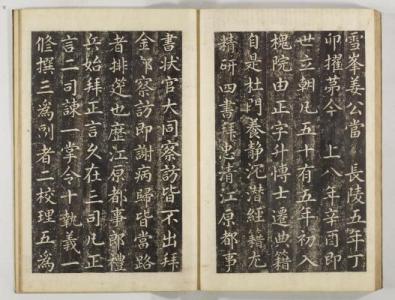 雪峯姜公當 長陵五年丁
卯擢第今 上八年辛酉即
世立朝凡五十有五年初入
槐院由正字升博士遷典籍
自是杜門養静沉潜經籍尤
精研四書拜忠清江原都事
書狀官大同察訪皆不出拜
金郊察訪即謝病歸皆當路
者排笮也歷江原都事郎禮
兵始拜正言久在三司凡正
言二司諫一掌令十執義一
脩撰三為副者二校理五為